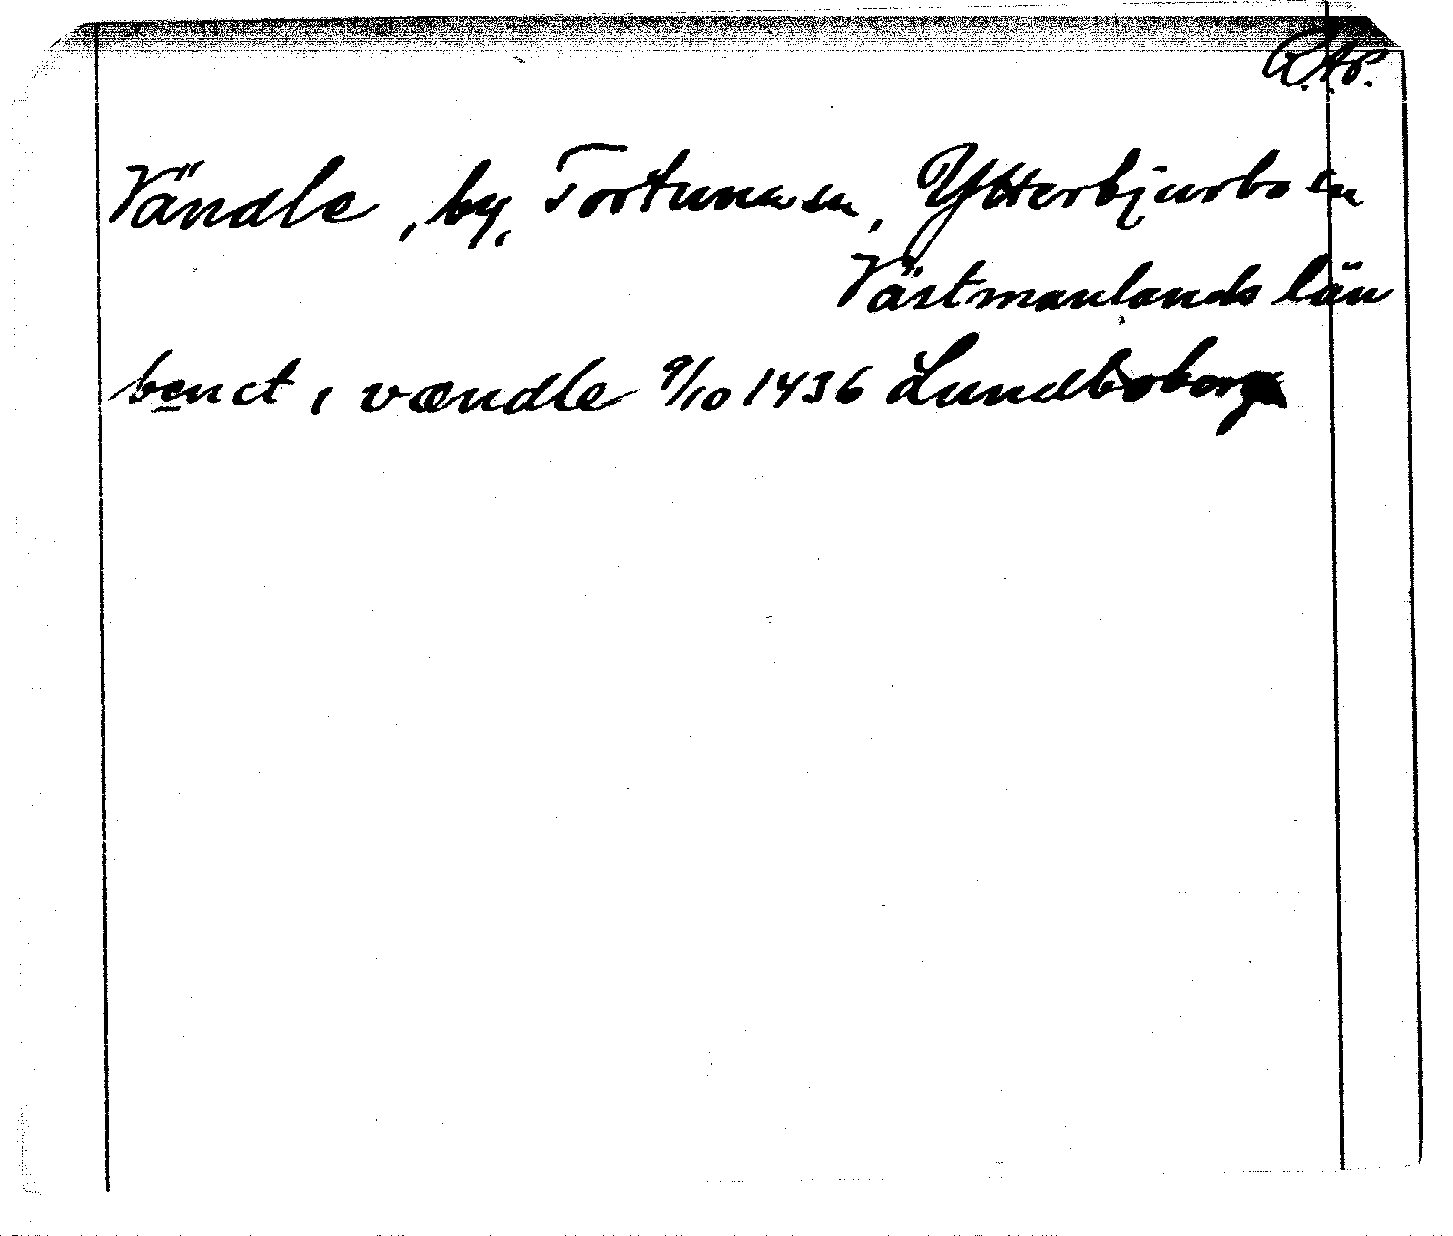 R.A.P.
Vändle, by, Tortuna sn, Ytterbjurbo sn
Västmanlands län
benct i vændle 9/10 1436 Lundboborg